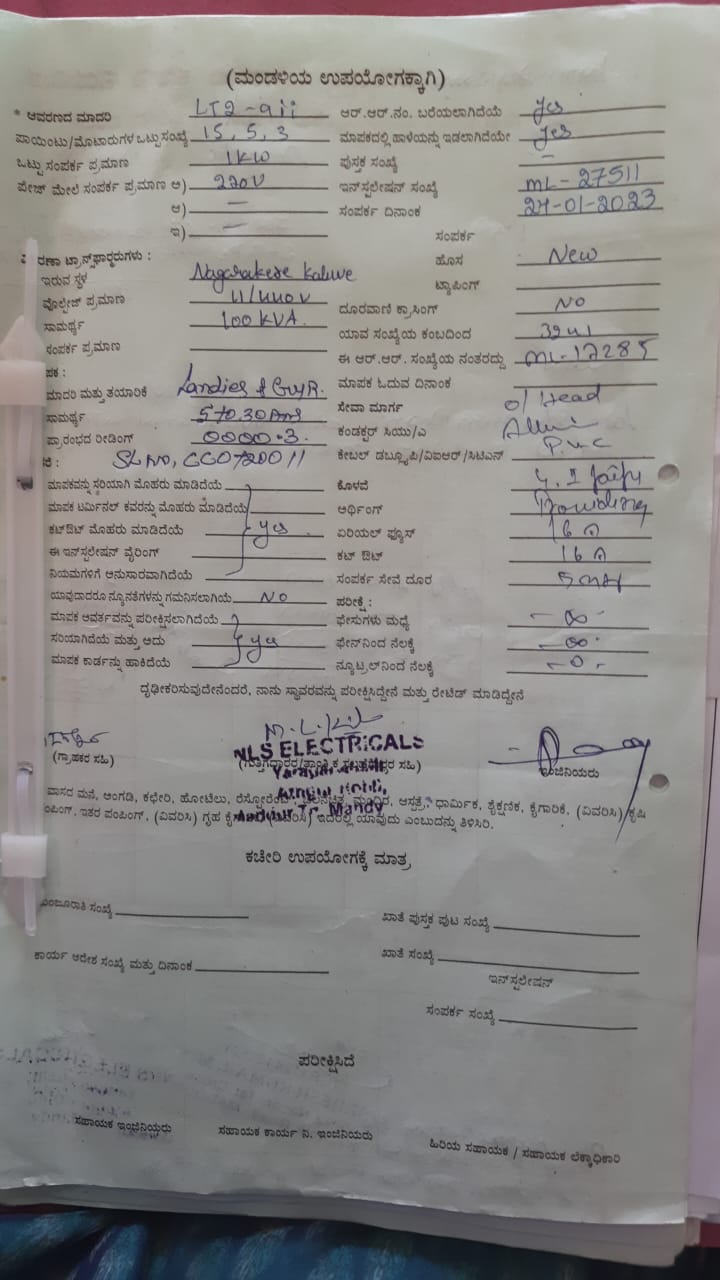 (ಮಂಡಳಿಯ ಉಪಯೋಗಕ್ಕಾಗಿ)
* ಆವರಣದ ಮಾದರಿ LT2-aii ಆರ್.ಆರ್.ನಂ. ಬರೆಯಲಾಗಿದೆಯೆ yes
ಪಾಯಿಂಟು/ಮೊಟಾರುಗಳ ಒಟ್ಟು ಸಂಖ್ಯೆ 15, 5, 3 ಮಾಪಕದಲ್ಲಿ ಹಾಳೆಯನ್ನು ಇಡಲಾಗಿದೆಯೇ yes
ಒಟ್ಟು ಸಂಪರ್ಕ ಪ್ರಮಾಣ 1KW ಪುಸ್ತಕ ಸಂಖ್ಯೆ –
ಪೇಜ್ ಮೇಲೆ ಸಂಪರ್ಕ ಪ್ರಮಾಣ ಅ) 220V ಇನ್‌ಸ್ಟಲೇಷನ್ ಸಂಖ್ಯೆ ML-27511
ಆ) — ಸಂಪರ್ಕ ದಿನಾಂಕ 24-01-2023
ಇ) — ಸಂಪರ್ಕ
ರಣಾ ಟ್ರಾನ್ಸ್‌ಫಾರ್ಮರುಗಳು : ಹೊಸ New
ಇರುವ ಸ್ಥಳ Nagarakere Kaluve ಟ್ಯಾಪಿಂಗ್
ವೊಲ್ಟೇಜ್ ಪ್ರಮಾಣ 11/440V ದೂರವಾಣಿ ಕ್ರಾಸಿಂಗ್ NO
ಸಾಮರ್ಥ್ಯ 100 KVA ಯಾವ ಸಂಖ್ಯೆಯ ಕಂಬದಿಂದ
ಸಂಪರ್ಕ ಪ್ರಮಾಣ ಈ ಆರ್.ಆರ್. ಸಂಖ್ಯೆಯ ನಂತರದ್ದು ML-17285
ಪಕ : ಮಾಪಕ ಓದುವ ದಿನಾಂಕ
ಮಾದರಿ ಮತ್ತು ತಯಾರಿಕೆ Landies & GuyR. ಸೇವಾ ಮಾರ್ಗ o/Head
ಸಾಮರ್ಥ್ಯ 5 to 30 Ams ಕಂಡಕ್ಟರ್ ಸಿಯು/ಎ
ಪ್ರಾರಂಭದ ರೀಡಿಂಗ್ 0000.3 ಕೇಬಲ್ ಡಬ್ಲ್ಯೂಪಿ/ವಿಐಆರ್/ಸಿಟಿಎಸ್ P.V.C
SL NO, CC0720011
ಮಾಪಕವನ್ನು ಸರಿಯಾಗಿ ಮೊಹರು ಮಾಡಿದೆಯೆ ಕೊಳವೆ
ಮಾಪಕ ಟರ್ಮಿನಲ್ ಕವರನ್ನು ಮೊಹರು ಮಾಡಿದೆಯೆ ಆರ್ಥಿಂಗ್
ಕಟ್‌ಔಟ್ ಮೊಹರು ಮಾಡಿದೆಯೆ yes ಏರಿಯಲ್ ಫ್ಯೂಸ್ 16 A
ಈ ಇನ್‌ಸ್ಟಲೇಷನ್ ವೈರಿಂಗ್ ಕಟ್ ಔಟ್ 16 A
ನಿಯಮಗಳಿಗೆ ಅನುಸಾರವಾಗಿದೆಯೆ ಸಂಪರ್ಕ ಸೇವೆ ದೂರ
ಯಾವುದಾದರೂ ನ್ಯೂನತೆಗಳನ್ನು ಗಮನಿಸಲಾಗಿಯೆ NO ಪರೀಕ್ಷೆ :
ಮಾಪಕ ಆವರ್ತವನ್ನು ಪರೀಕ್ಷಿಸಲಾಗಿದೆಯೆ ಫೇಸುಗಳು ಮಧ್ಯೆ – ∞ -
ಸರಿಯಾಗಿದೆಯೆ ಮತ್ತು ಅದು yes ಫೇಸ್‌ನಿಂದ ನೆಲಕ್ಕೆ – ∞ -
ಮಾಪಕ ಕಾರ್ಡನ್ನು ಹಾಕಿದೆಯೆ ನ್ಯೂಟ್ರಲ್‌ನಿಂದ ನೆಲಕ್ಕೆ – 0 -
ದೃಢೀಕರಿಸುವುದೇನೆಂದರೆ, ನಾನು ಸ್ಥಾವರವನ್ನು ಪರೀಕ್ಷಿಸಿದ್ದೇನೆ ಮತ್ತು ರೇಟೆಡ್ ಮಾಡಿದ್ದೇನೆ
NLS ELECTRICALS
(ಗ್ರಾಹಕರ ಸಹಿ) ಸಹಿ) ಇಂಜಿನಿಯರು
Maddur Tr. Mandy
ವಾಸದ ಮನೆ, ಅಂಗಡಿ, ಕಛೇರಿ, ಹೋಟೆಲು, ಧಾರ್ಮಿಕ, ಶೈಕ್ಷಣಿಕ, ಕೈಗಾರಿಕೆ, (ವಿವರಿಸಿ) ಕೃಷಿ
ಂಪಿಂಗ್. ಇತರ ಪಂಪಿಂಗ್, (ವಿವರಿಸಿ) ಗೃಹ ಇದರಲ್ಲಿ ಯಾವುದು ಎಂಬುದನ್ನು ತಿಳಿಸಿರಿ.
ಕಚೇರಿ ಉಪಯೋಗಕ್ಕೆ ಮಾತ್ರ
ಮಂಜೂರಾತಿ ಸಂಖ್ಯೆ ಖಾತೆ ಪುಸ್ತಕ ಪುಟ ಸಂಖ್ಯೆ
ಕಾರ್ಯ ಆದೇಶ ಸಂಖ್ಯೆ ಮತ್ತು ದಿನಾಂಕ ಖಾತೆ ಸಂಖ್ಯೆ
ಇನ್‌ಸ್ಟಲೇಷನ್
ಸಂಪರ್ಕ ಸಂಖ್ಯೆ
ಪರೀಕ್ಷಿಸಿದೆ
ಸಹಾಯಕ ಇಂಜಿನಿಯರು ಸಹಾಯಕ ಕಾರ್ಯ ನಿ. ಇಂಜಿನಿಯರು ಹಿರಿಯ ಸಹಾಯಕ / ಸಹಾಯಕ ಲೆಕ್ಕಾಧಿಕಾರಿ